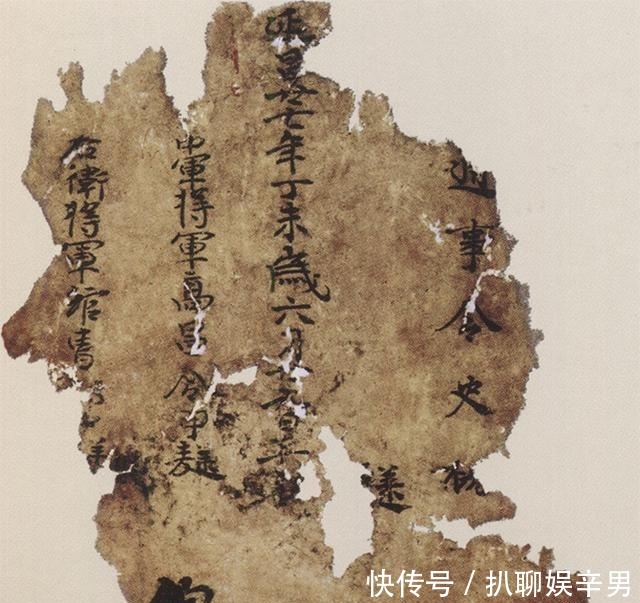 通事令史
延昌廿七年丁未歲六月廿日
中軍將軍高昌令尹麴
右衛將軍綰曹
快传号 / 扒聊娱辛男